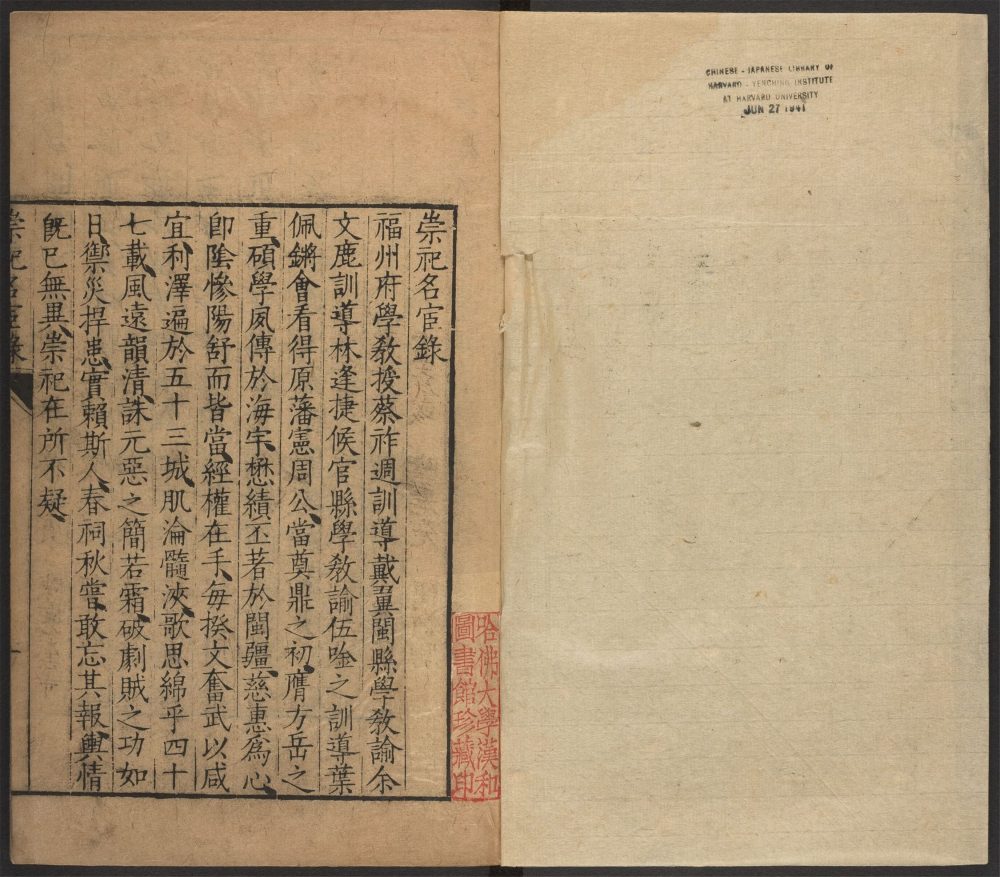 CHINESE - JAPANESE LIBRARY OF
HARVARD - YENCHING INSTITUTE
AT HARVARD UNIVERSITY
JUN 27 1941
崇祀名宦錄
福州府學敎授蔡祚週訓導戴翼閩縣學敎諭余
文鹿訓導林逢捷候官縣學敎諭伍唫之訓導葉
佩鏘會看得原藩憲周公、當奠鼎之初、膺方岳之
重、碩學夙傳於海宇、懋績丕著於閩疆、慈惠爲心、
卽陰慘陽舒而皆當、經權在手、每揆文奮武以咸
宜、利澤遍於五十三城、肌淪髓浹、歌思綿乎四十
七載、風遠韻淸、誅元惡之簡若霜、破劇賊之功如
日、禦災捍患、實賴斯人、春祠秋嘗、敢忘其報、輿情
旣已無異、崇祀在所不疑、
崇祀名宦錄
一
哈佛大學漢和
圖書館珍藏印